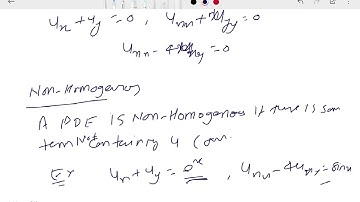 u_x + u_y = 0, u_xx + xu_yy = 0
u_xx - 4xu_xy = 0
Non-Homogenous
A PDE IS Non-Homogenous if there is som
term Not containing u (
Ex u_x + u_y = e^x, u_xx - 4u_xy = sinx